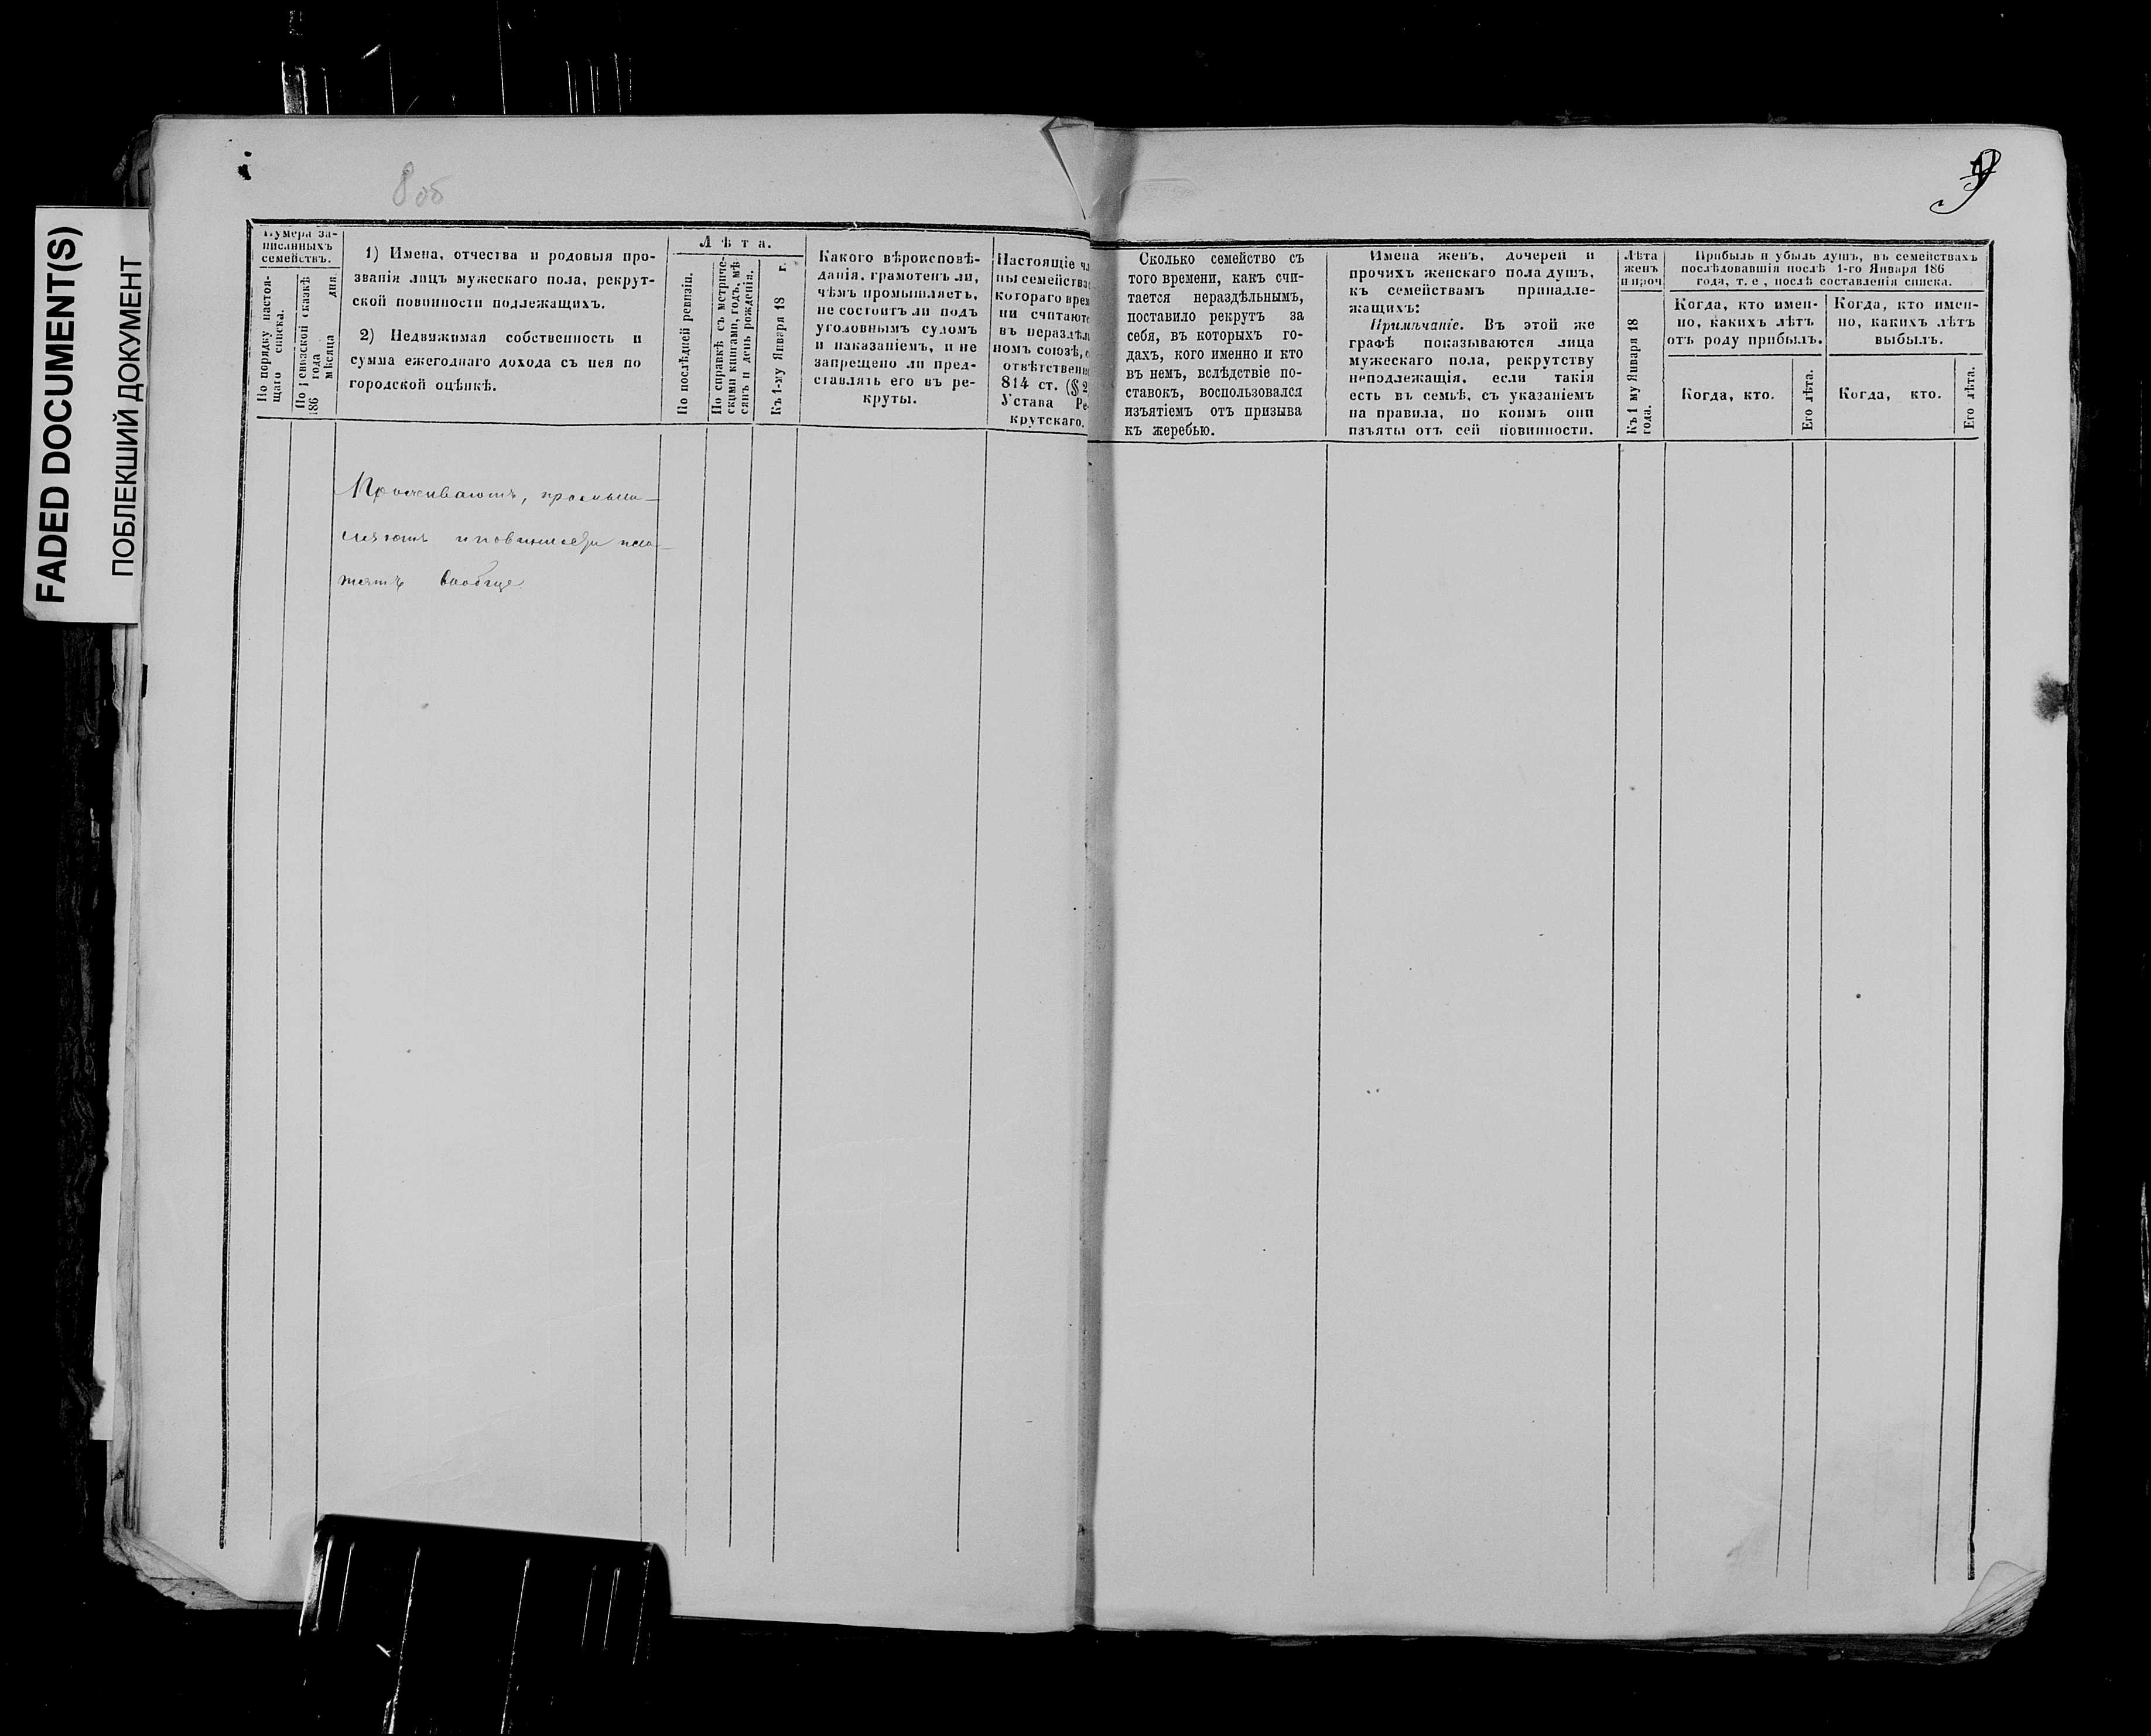 FADED DOCUMENT(S)
ПОБЛЕКШИЙ ДОКУМЕНТ
8 об
9
Нумера за-
писанныхъ
семействъ.
По порядку настоя-
щаго списка.
По ревизской сказкѣ
186 года
мѣсяца дня
1) Имена, отчества и родовыя про-
званія лицъ мужескаго пола, рекрут-
ской повинности подлежащихъ.
2) Недвижимая собственность и
сумма ежегоднаго дохода съ нея по
городской оцѣнкѣ.
Лѣта.
По послѣдней ревизіи.
По справкѣ съ метриче-
скими книгами, годъ, мѣ-
сяцъ и день рожденія.
Къ 1-му Января 18 г.
Какого вѣроисповѣ-
данія, грамотенъ ли,
чѣмъ промышляетъ,
не состоитъ ли подъ
уголовнымъ судомъ
и наказаніемъ, и не
запрещено ли пред-
ставлять его въ ре-
круты.
Настоящіе чл
ны семейства
котораго врем
ни считаютс
въ нераздѣл
номъ союзѣ, с
отвѣтственно
814 ст. (§ 2
Устава Ре-
крутскаго.
Сколько семейство съ
того времени, какъ счи-
тается нераздѣльнымъ,
поставило рекрутъ за
себя, въ которыхъ го-
дахъ, кого именно и кто
въ немъ, вслѣдствіе по-
ставокъ, воспользовался
изъятіемъ отъ призыва
къ жеребью.
Имена женъ, дочерей и
прочихъ женскаго пола душъ,
къ семействамъ принадле-
жащихъ:
Примѣчаніе. Въ этой же
графѣ показываются лица
мужескаго пола, рекрутству
неподлежащія, если такія
есть въ семьѣ, съ указаніемъ
на правила, по коимъ они
изъяты отъ сей повинности.
Лѣта
женъ
и проч.
Къ 1 му Января 18
года.
Прибыль и убыль душъ, въ семействахъ
послѣдовавшія послѣ 1-го Января 186
года, т. е., послѣ составленія списка.
Когда, кто имен-
но, какихъ лѣтъ
отъ роду прибылъ.
Когда, кто.
Его лѣта.
Когда, кто имен-
но, какихъ лѣтъ
выбылъ.
Когда, кто.
Его лѣта.
Проживаютъ, промыш-
ляютъ и повинности пла-
тятъ вообще